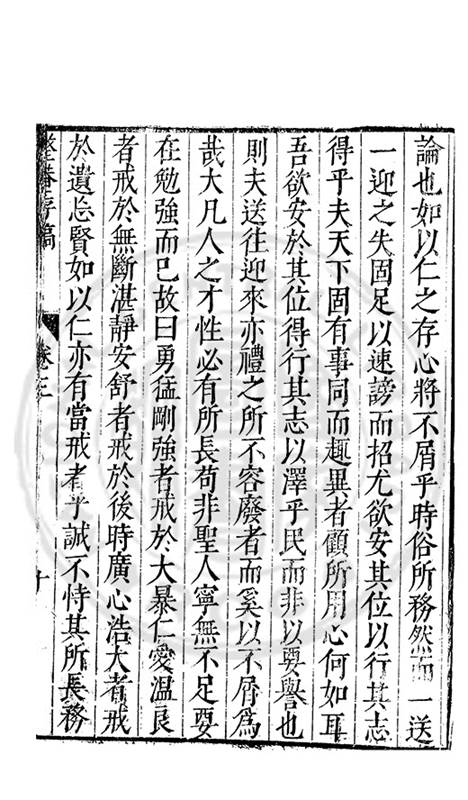 論也如以仁之存心將不屑乎時俗所務然而一送
一迎之失固足以速謗而招尤欲安其位以行其志
得乎夫天下固有事同而趣異者顧所用心何如耳
吾欲安於其位得行其志以澤乎民而非以要譽也
則夫送往迎來亦禮之所不容廢者而奚以不屑為
哉大凡人之才性必有所長苟非聖人寧無不足要
在勉強而已故曰勇猛剛強者戒於大暴仁愛溫良
者戒於無斷湛靜安舒者戒於後時廣心浩大者戒
於遺忘賢如以仁亦有當戒者乎誠不恃其所長務
存稿 卷之 十